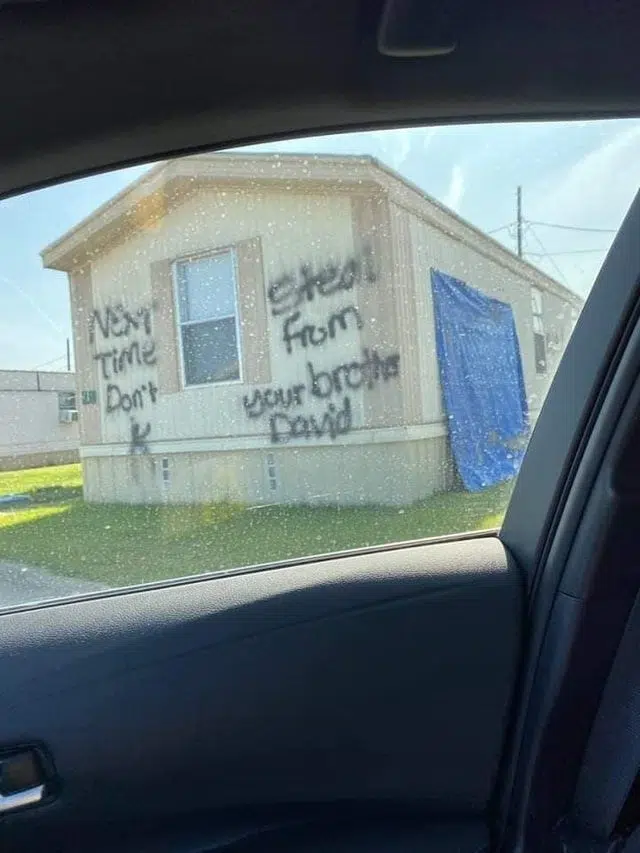 Next
Time
Don't
K
Steal
From
your brother
David